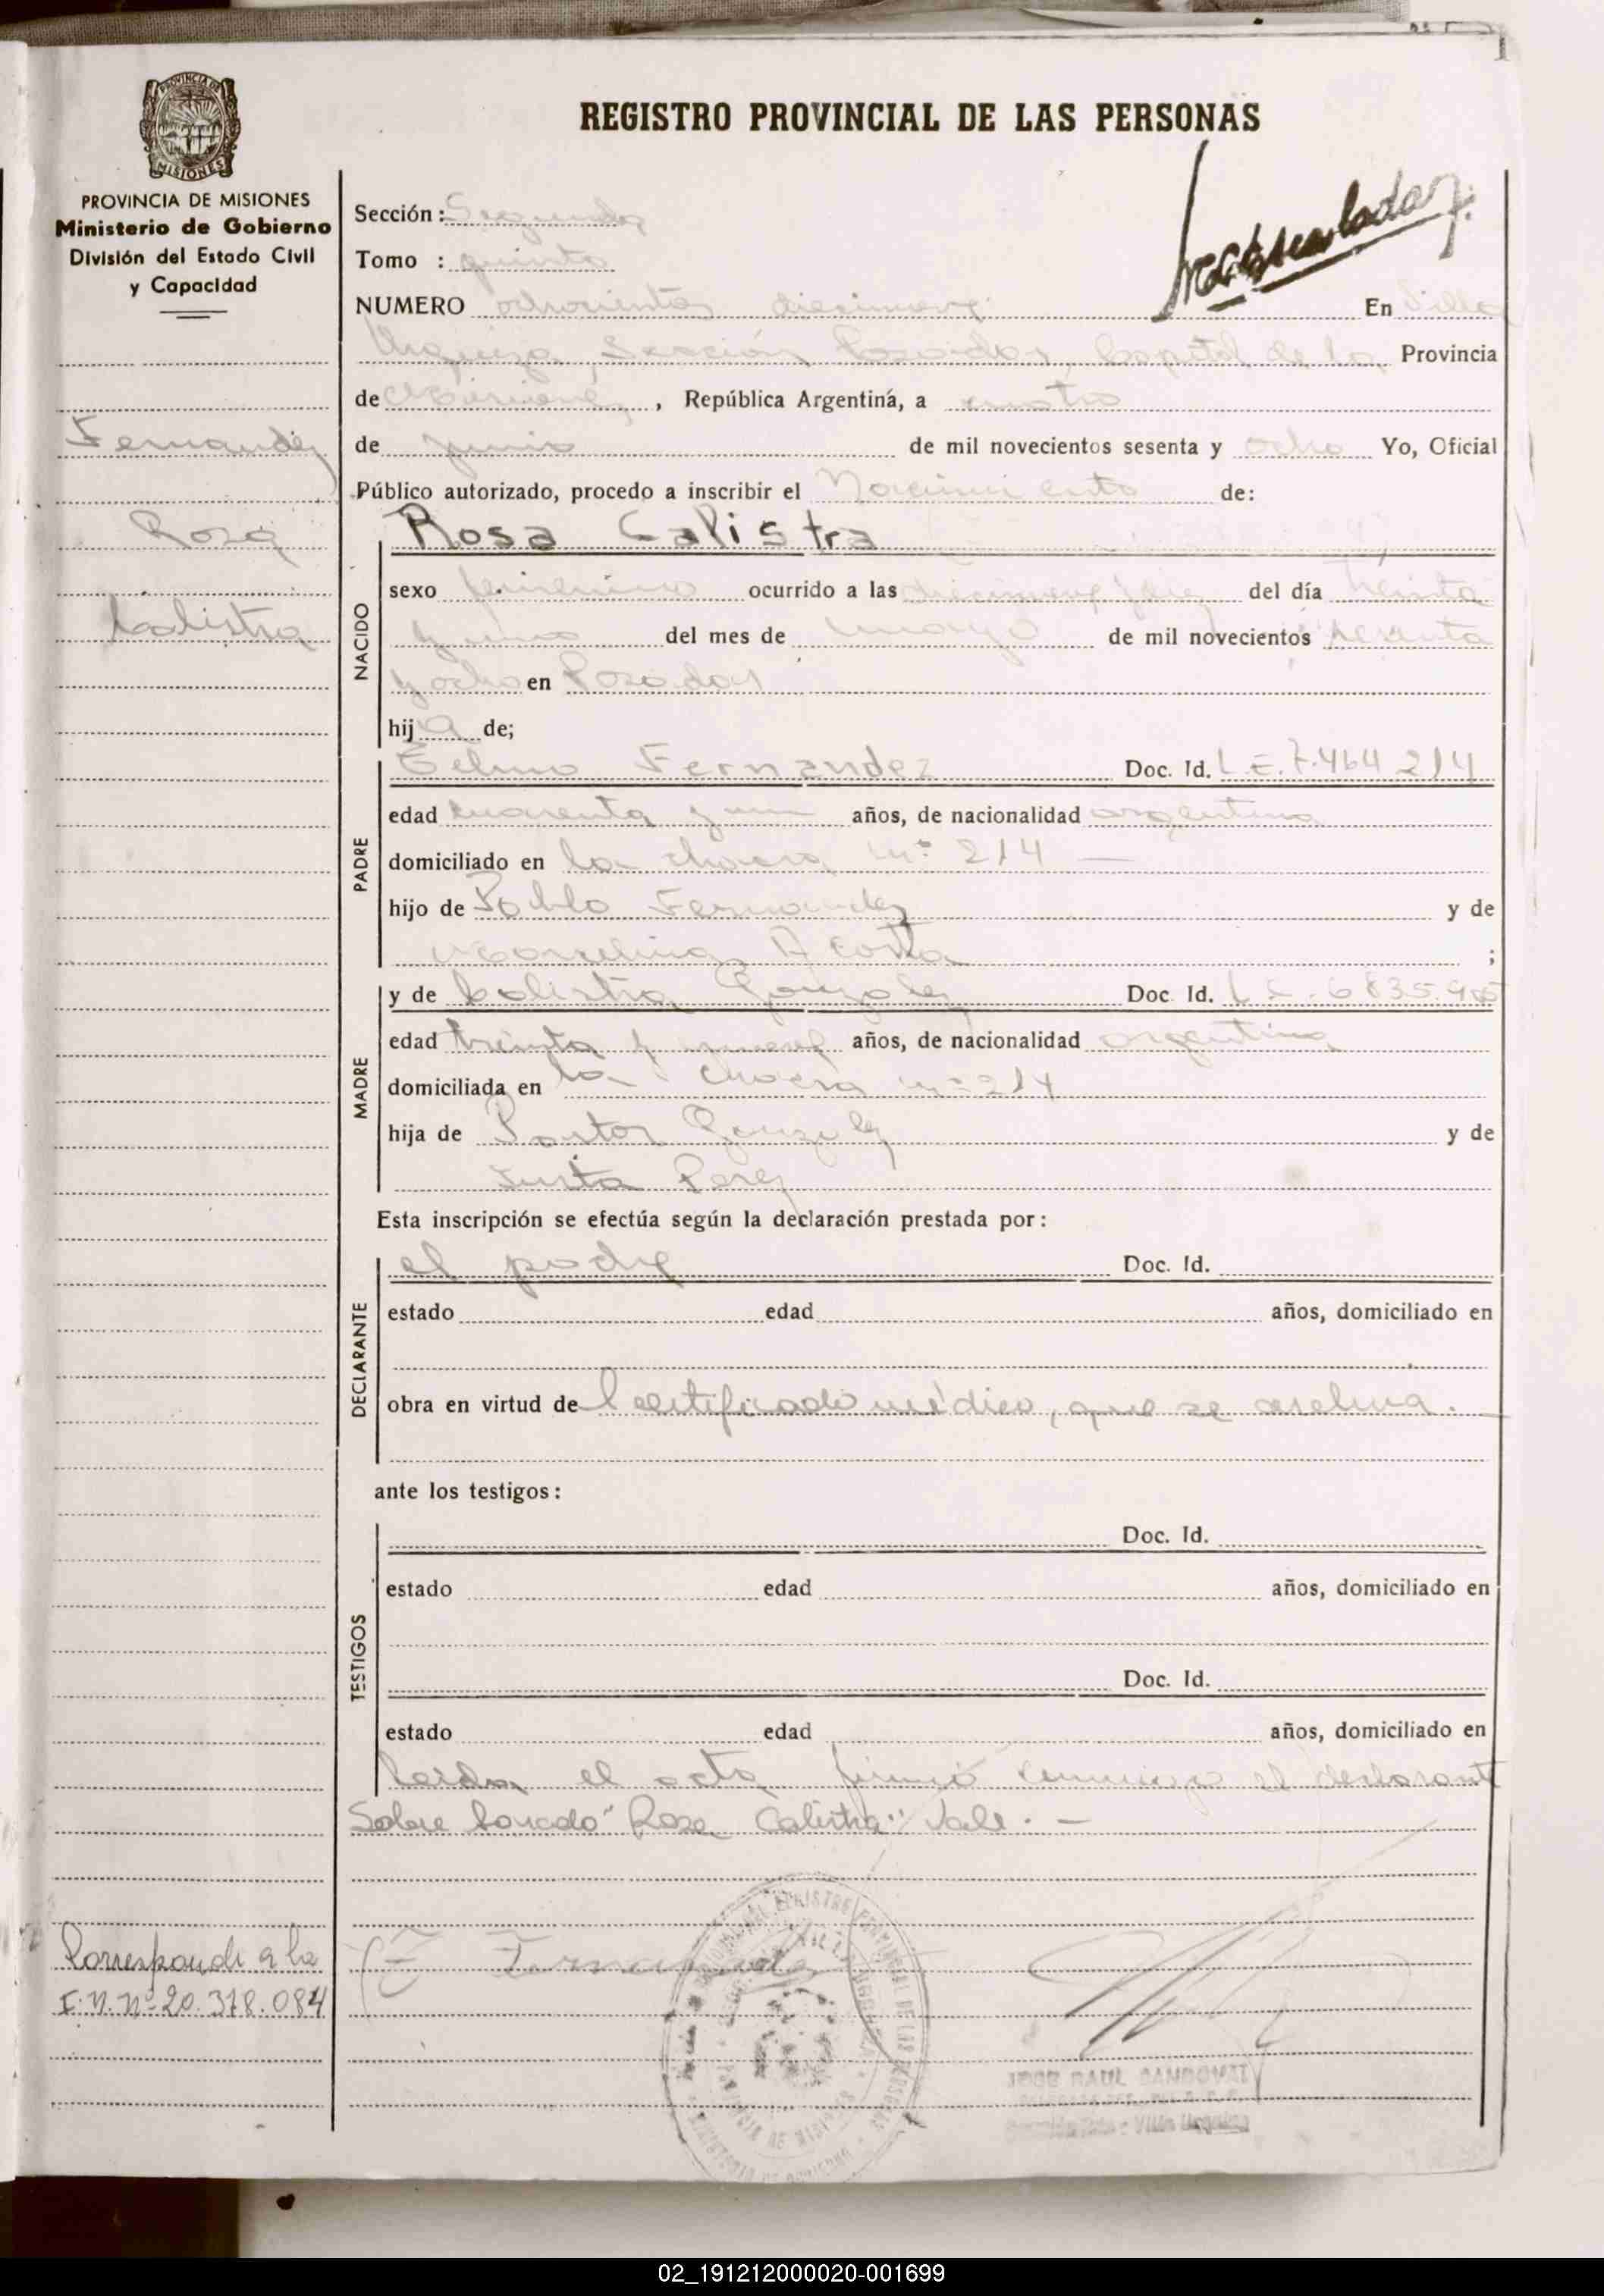 REGISTRO PROVINCIAL DE LAS PERSONAS
PROVINCIA DE MISIONES
Ministerio de Gobierno
División del Estado Civil
y Capacidad
Fernandez
Rosa
Calistra
Corresponde a la
I.N. Nº 20.378.084
Sección: Segunda
Tomo : quinto
NUMERO ochocientos diecinueve En Villa
Urquiza, Sección Posadas, Capital de la Provincia
de Misiones, República Argentina, a cuatro
de junio de mil novecientos sesenta y ocho Yo, Oficial
Público autorizado, procedo a inscribir el Nacimiento de:
Rosa Calistra
NACIDO
sexo femenino ocurrido a las diecinueve del día treinta
y uno del mes de mayo de mil novecientos sesenta
y ocho en Posadas
hija de;
PADRE
Telmo Fernandez Doc. Id. L.E.7.464.214
edad cuarenta y un años, de nacionalidad argentina
domiciliado en la chacra nº 214
hijo de Pablo Fernandez y de
Marcelina Acosta ;
MADRE
y de Calistra Gonzalez Doc. Id.
edad treinta y nueve años, de nacionalidad argentina
domiciliada en la chacra nº 214
hija de Gonzalez y de
Justa Perez
Esta inscripción se efectúa según la declaración prestada por:
DECLARANTE
el padre Doc. Id.
estado edad años, domiciliado en
obra en virtud del certificado médico, que se archiva.
ante los testigos:
TESTIGOS
Doc. Id.
estado edad años, domiciliado en
Doc. Id.
estado edad años, domiciliado en
Leida el acta firmó conmigo el declarante
Sobre borrado "Rosa Calistra" Vale. —
Fernandez
JOSE RAUL SANDOVAL
Villa Urquiza
02_191212000020-001699